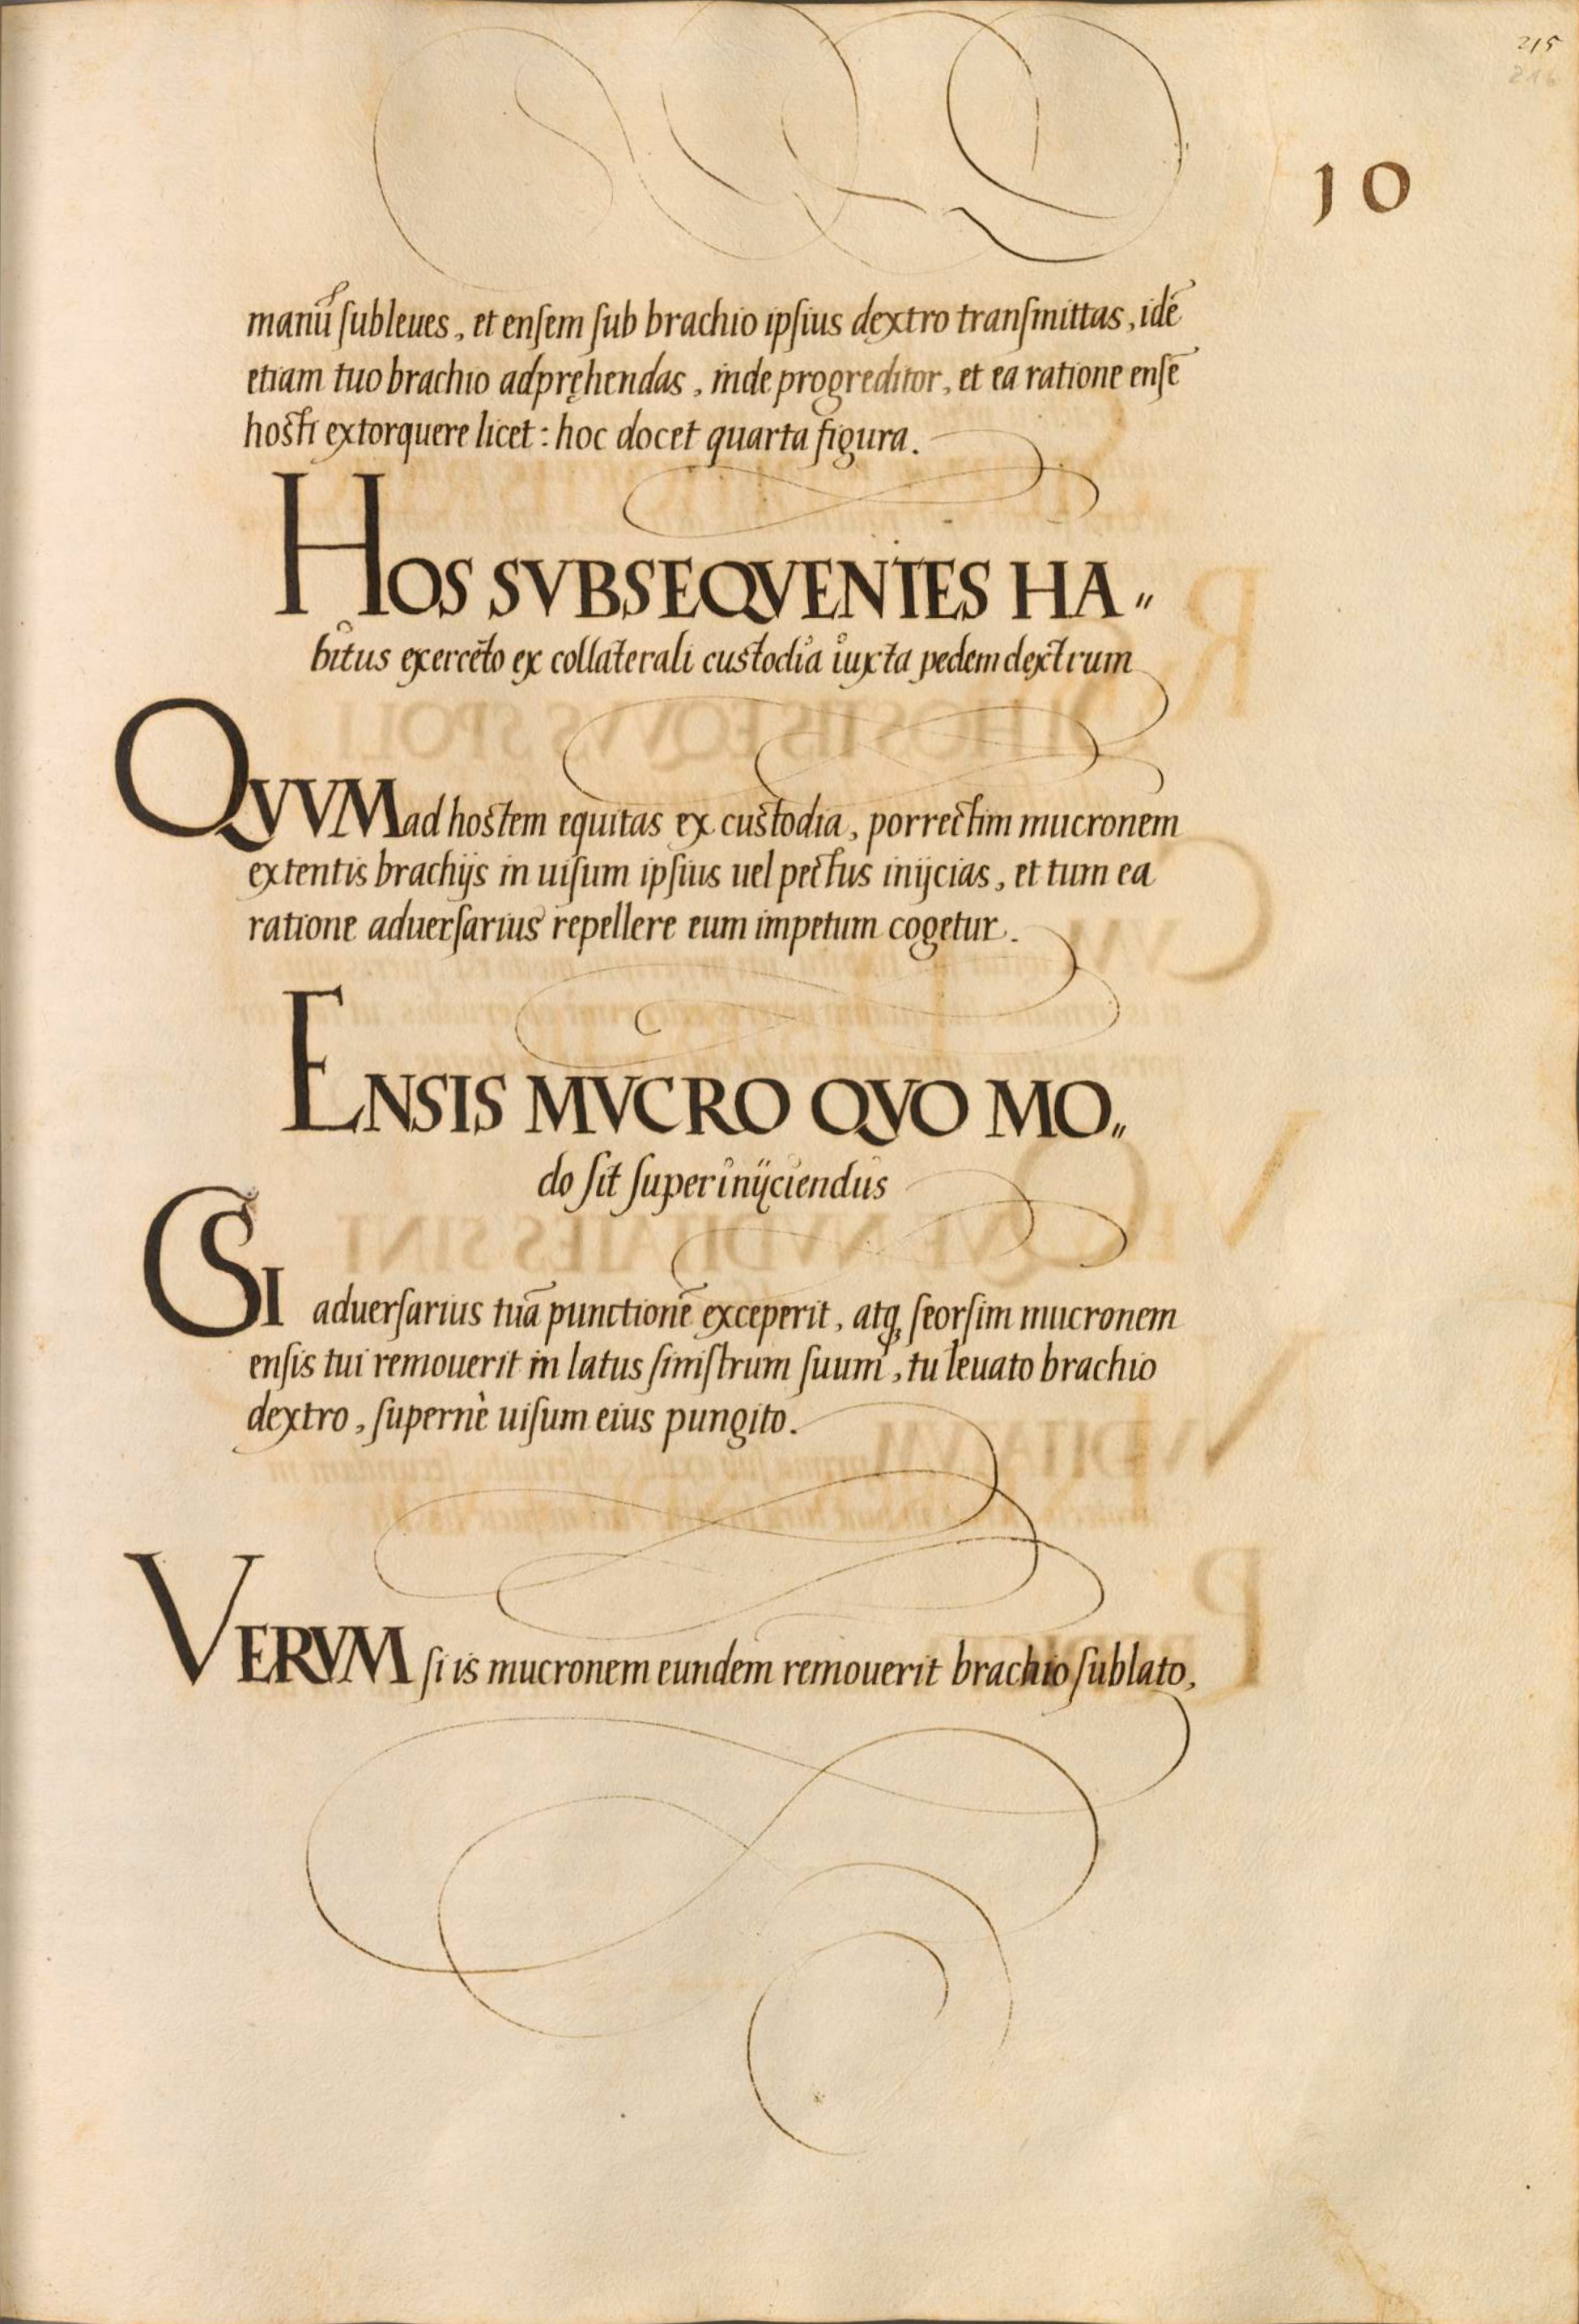 215
216
10
manū ſubleues, et enſem ſub brachio ipſius dextro tranſmittas, idē
etiam tuo brachio adpręhendas, inde progreditor, et ea ratione enſē
hosti extorquere licet: hoc docet quarta figura.
HOS SVBSEQVENTES HA〃
bitus exercēto ex collaterali custodia iuxta pedem dextrum
QVVM ad hostem equitas ex custodia, porrectim mucronem
extentis brachijs in uiſum ipſius uel pectus inijcias, et tum ea
ratione aduerſarius repellere eum impetum cogetur.
ENSIS MVCRO QVO MO〃
do ſit ſuperinijciendus
SI aduerſarius tuā punctionē exceperit, atq̨ ſeorſim mucronem
enſis tui remouerit in latus ſiniſtrum ſuum, tu leuato brachio
dextro, ſupernè uiſum eius pungito.
VERVM ſi is mucronem eundem remouerit brachio ſublato,